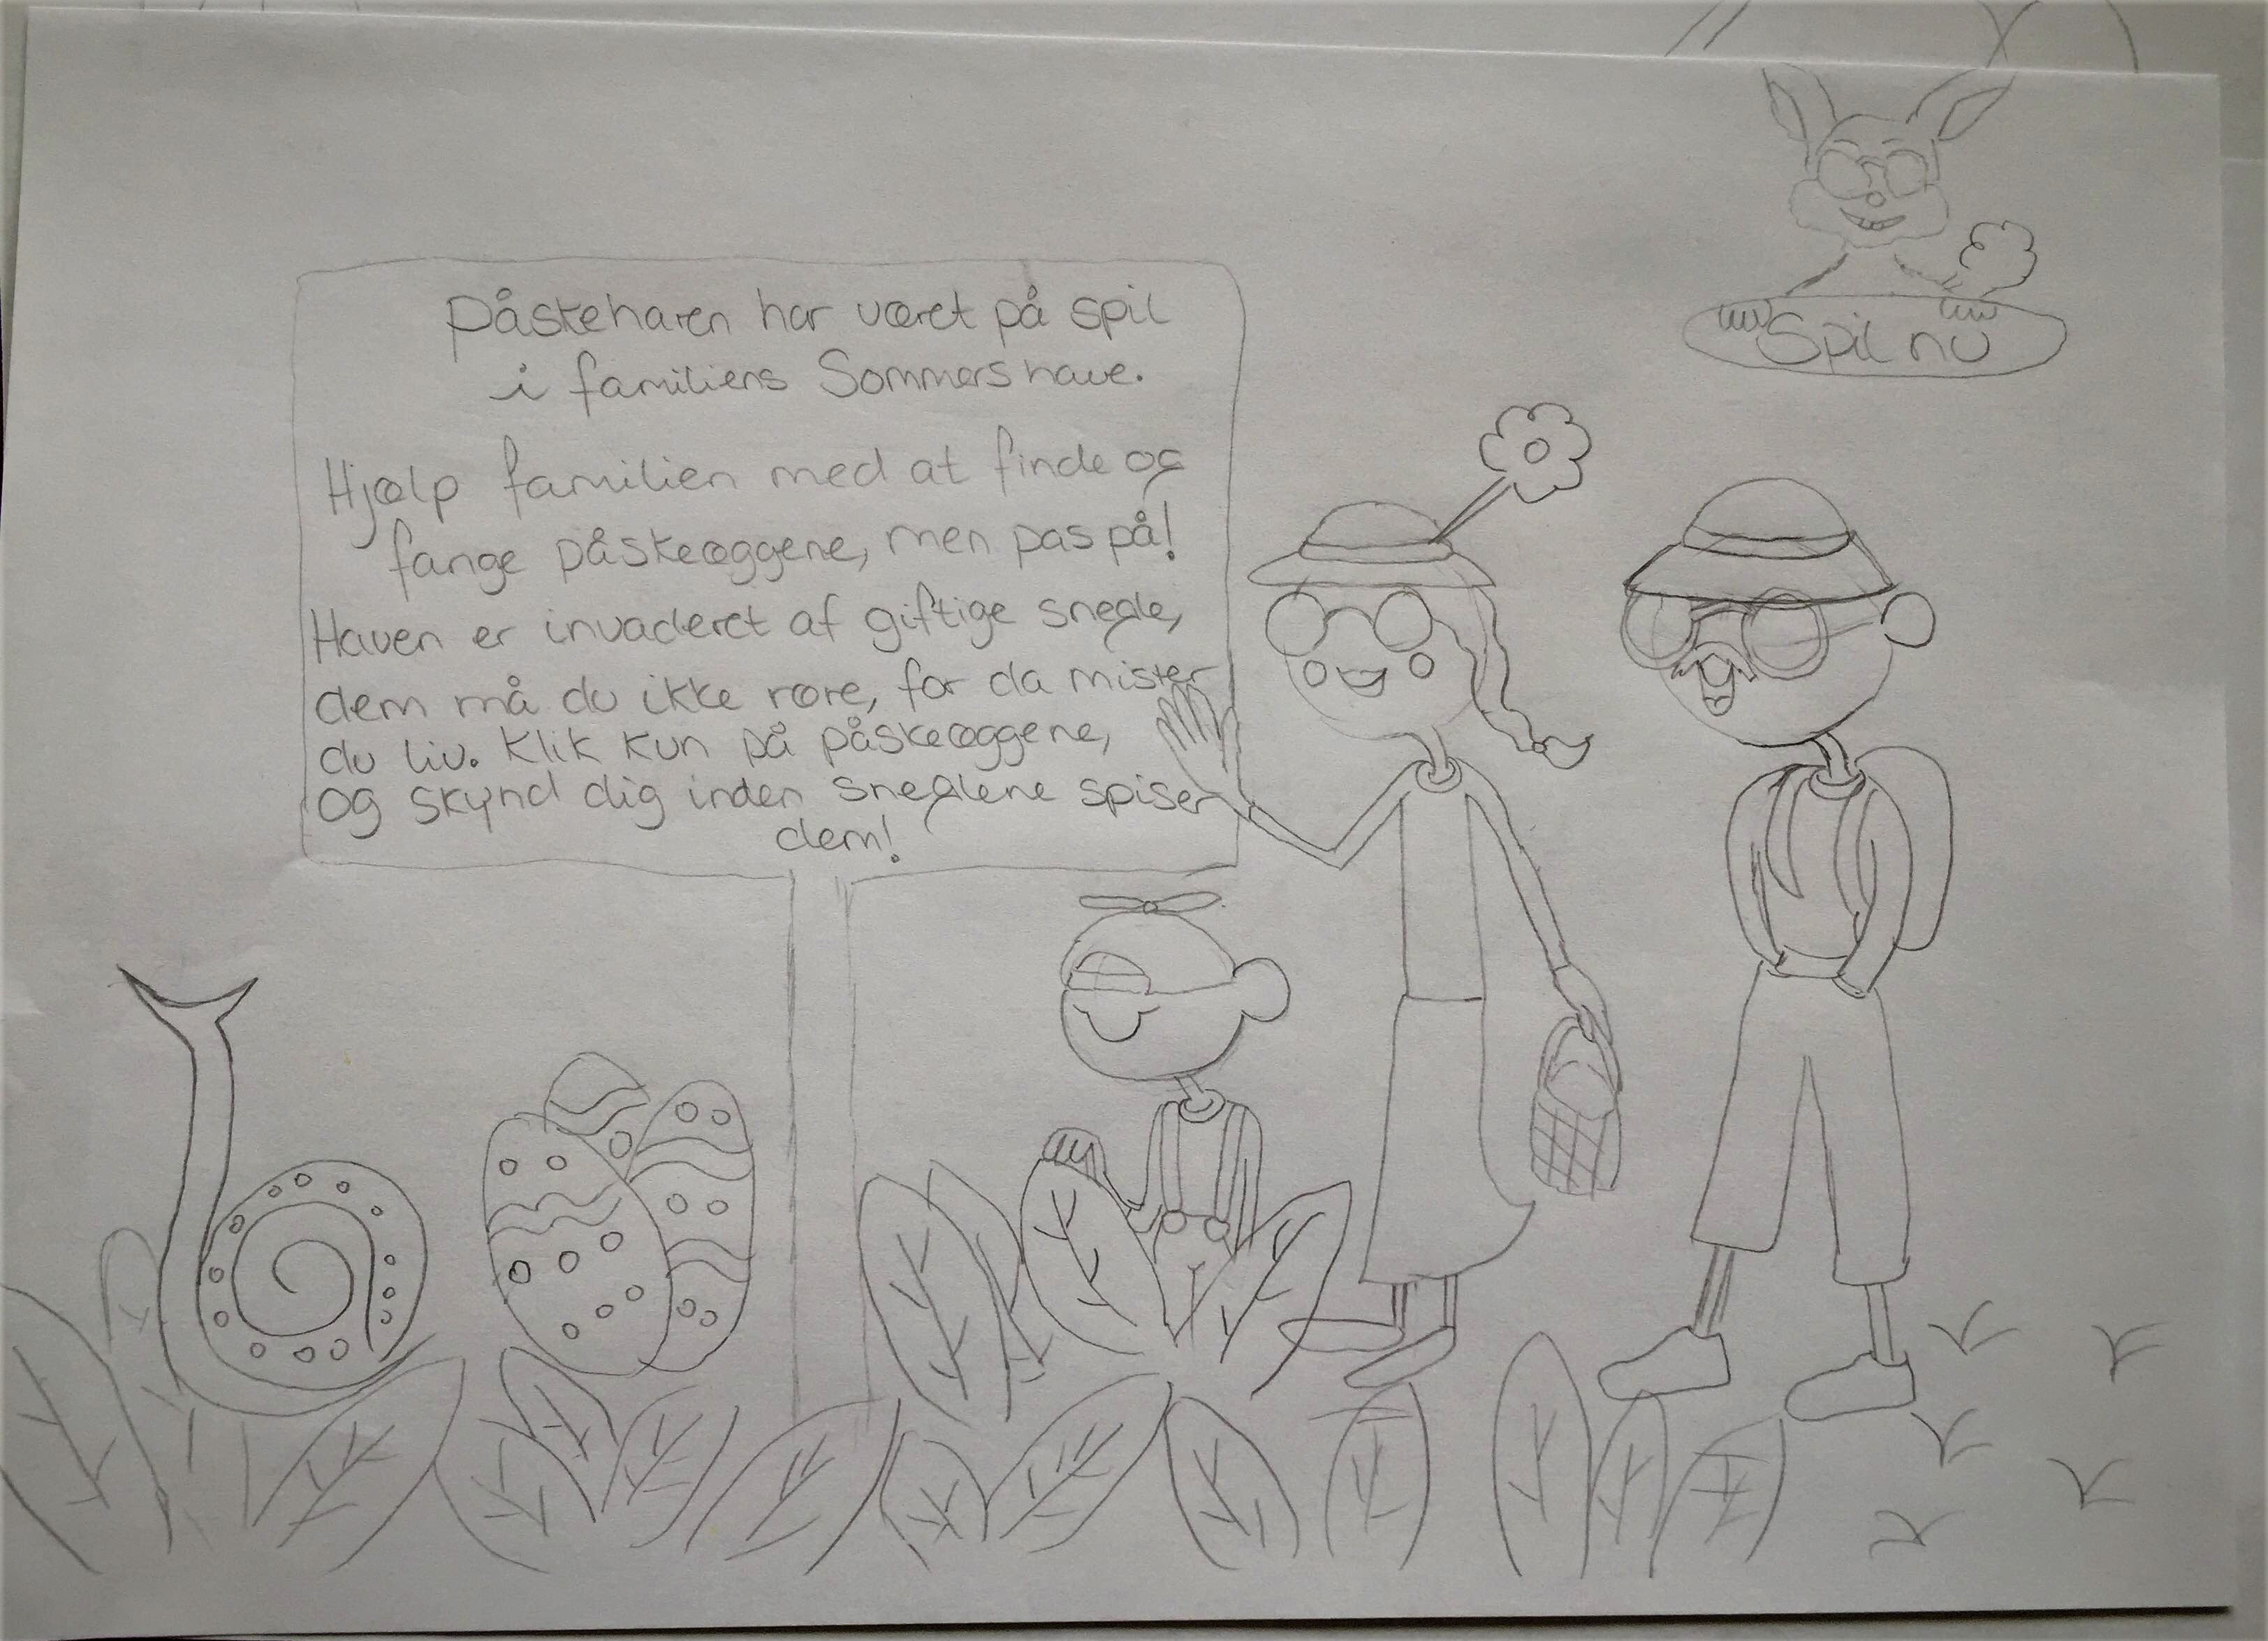 Påskeharen har været på spil
i familiens Sommers have.
Hjælp familien med at finde og
fange påskeæggene, men pas på!
Haven er invaderet af giftige snegle,
dem må du ikke røre, for da mister
du liv. Klik kun på påskeæggene,
og skynd dig inden sneglene spiser
dem!
Spil nu